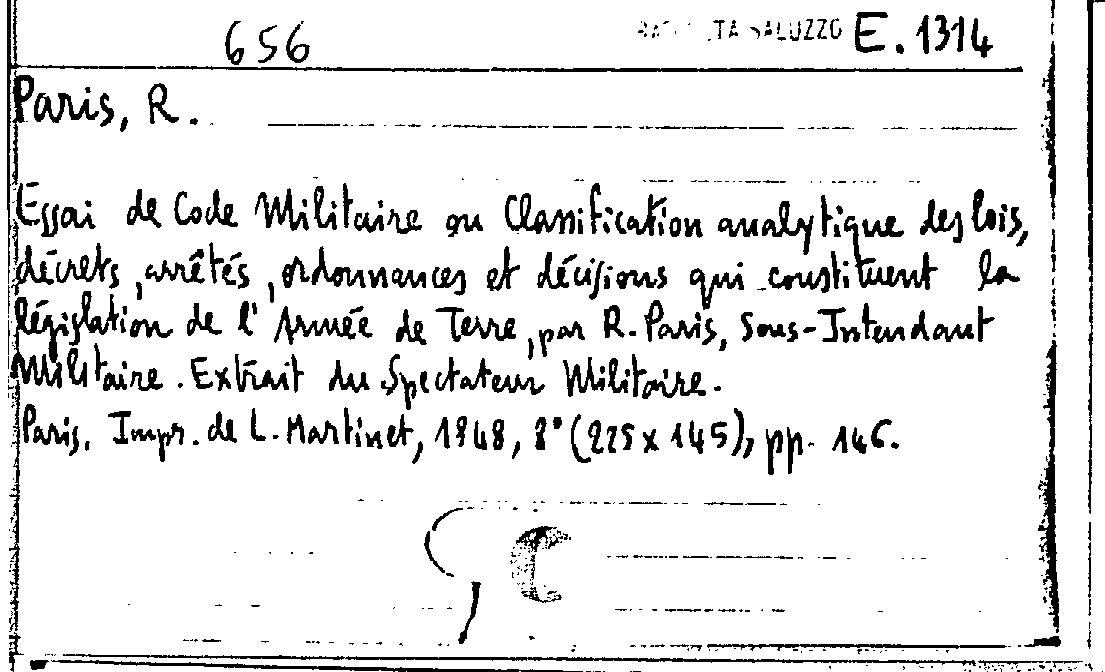 656 RACCOLTA SALUZZO E. 1314
Paris, R.
Essai de Code Militaire ou Classification analytique des lois,
décrets, arrêtés, ordonnances et décisions qui constituent la
législation de l'Armée de Terre, par R. Paris, Sous-Intendant
Militaire. Extrait du Spectateur Militaire.
Paris, Impr. de L. Martinet, 1848, 8° (225 x 145), pp. 146.